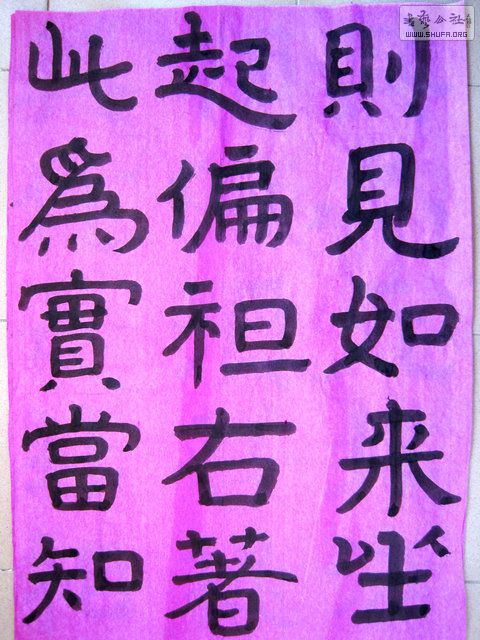 則見如来坐
起偏袒右著
此爲實當知
書藝公社
WWW.SHUFA.ORG